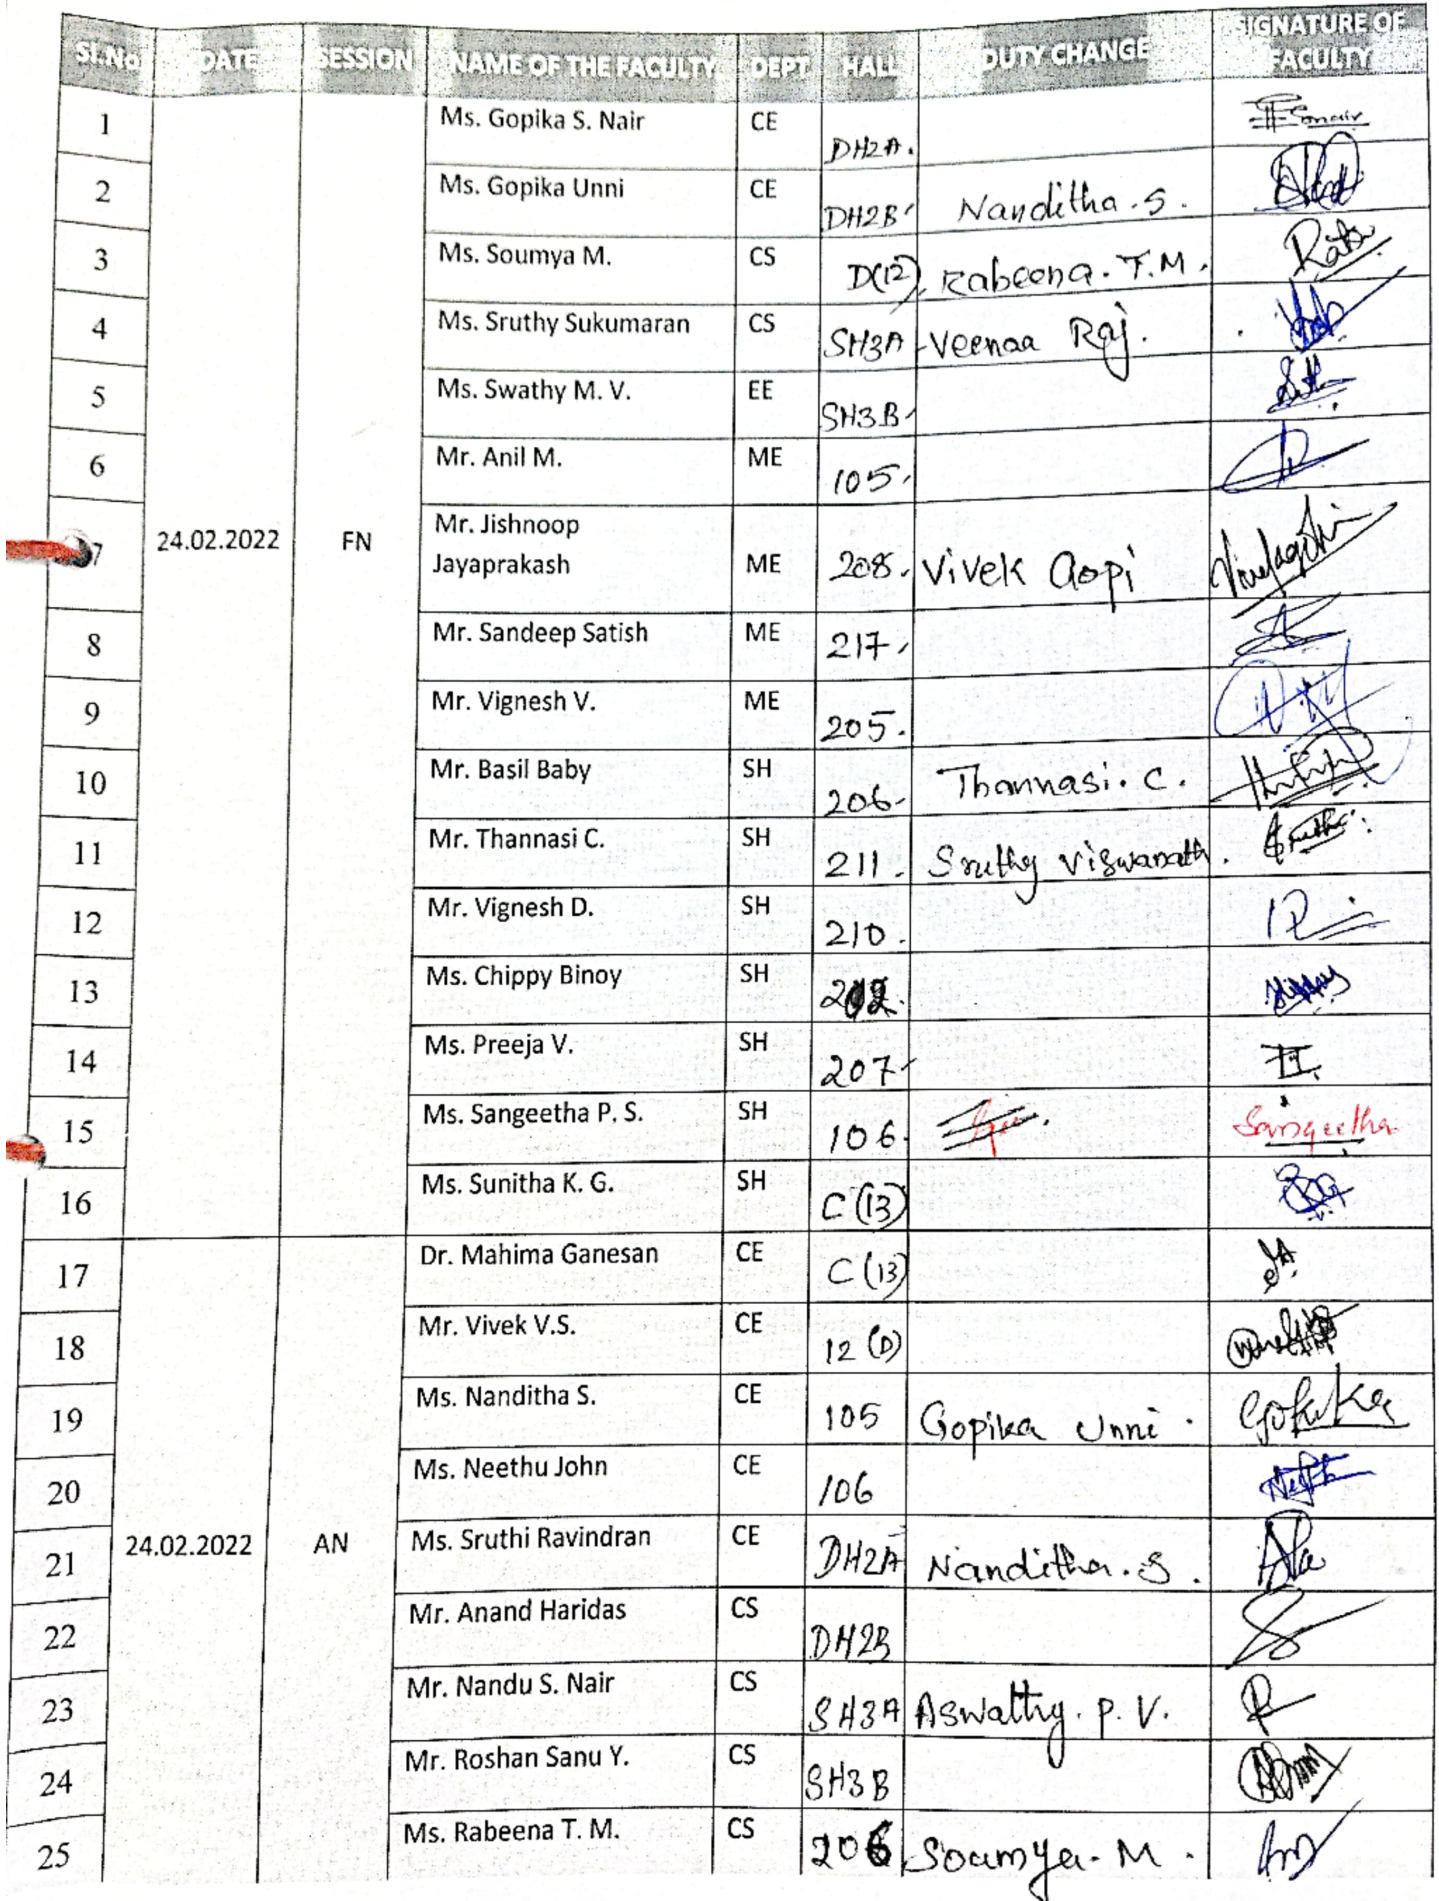 Sl.No DATE SESSION NAME OF THE FACULTY DEPT HALL DUTY CHANGE SIGNATURE OF FACULTY
1 Ms. Gopika S. Nair CE DH2A.
2 Ms. Gopika Unni CE DH2B Nanditha. S.
3 Ms. Soumya M. CS D(12) Rabeena. T.M.
4 Ms. Sruthy Sukumaran CS SH3A Veenaa Raj.
5 Ms. Swathy M. V. EE SH3B
6 Mr. Anil M. ME 105
7 24.02.2022 FN Mr. Jishnoop
Jayaprakash ME 208. Vivek Gopi
8 Mr. Sandeep Satish ME 217
9 Mr. Vignesh V. ME 205.
10 Mr. Basil Baby SH 206 Thannasi. C.
11 Mr. Thannasi C. SH 211. Sruthy Viswanath.
12 Mr. Vignesh D. SH 210.
13 Ms. Chippy Binoy SH
14 Ms. Preeja V. SH 207
15 Ms. Sangeetha P. S. SH 106. Sangeetha
16 Ms. Sunitha K. G. SH C (13)
17 Dr. Mahima Ganesan CE C (13)
18 Mr. Vivek V.S. CE 12 (D)
19 Ms. Nanditha S. CE 105 Gopika Unni.
20 Ms. Neethu John CE 106
21 24.02.2022 AN Ms. Sruthi Ravindran CE DH2A Nanditha. S.
22 Mr. Anand Haridas CS DH2B
23 Mr. Nandu S. Nair CS SH3A Aswathy. P. V.
24 Mr. Roshan Sanu Y. CS SH3B
25 Ms. Rabeena T. M. CS 206 Soumya. M.